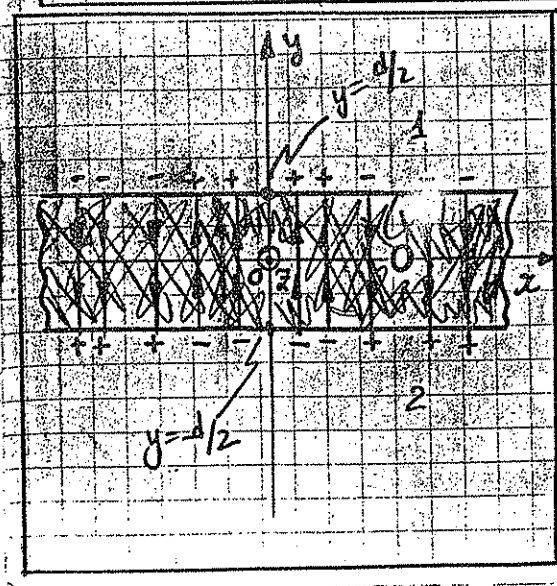 y
y=d/2
1
- - - + + + + - - -
0
0 z
x
+ + + - - - - + + +
2
y=-d/2